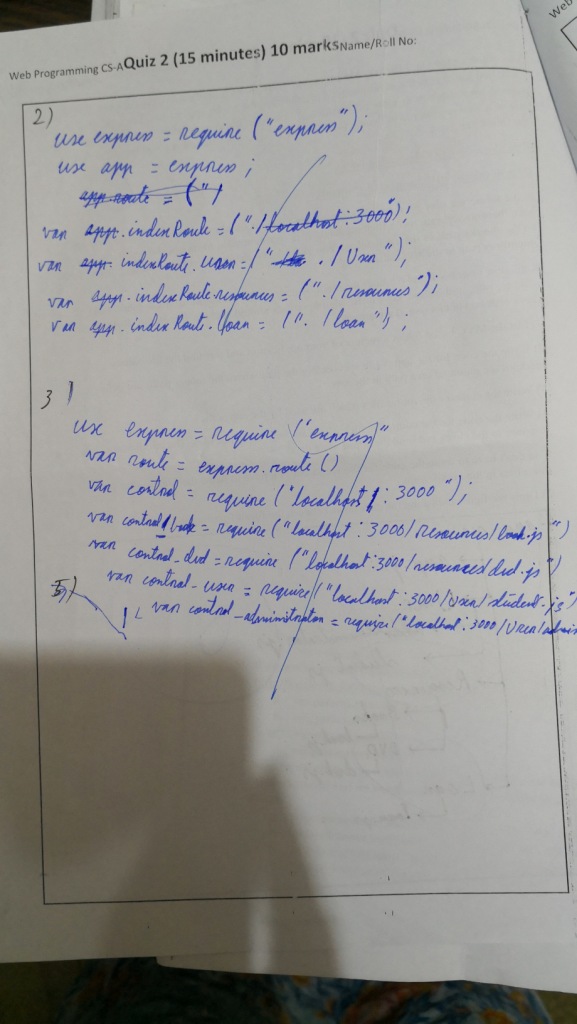 Web Programming CS-A Quiz 2 (15 minutes) 10 marks Name/Roll No:
2)
use express = require ("express");
use app = express;
app.route = ("")
var app.indexRoute = ("./localhost:3000");
var app.indexRoute.user = ("./User");
var app.indexRoute.resources = ("./resources");
var app.indexRoute.loan = ("./loan");
3)
use express = require ("express"
var route = express.route()
var control = require ("localhost/:3000");
var control_book = require ("localhost:3000/resources/book.js")
var control_dvd = require ("localhost:3000/resources/dvd.js")
var control_user = require ("localhost:3000/User/student.js")
5)
var control_administrator = require ("localhost:3000/User/admin